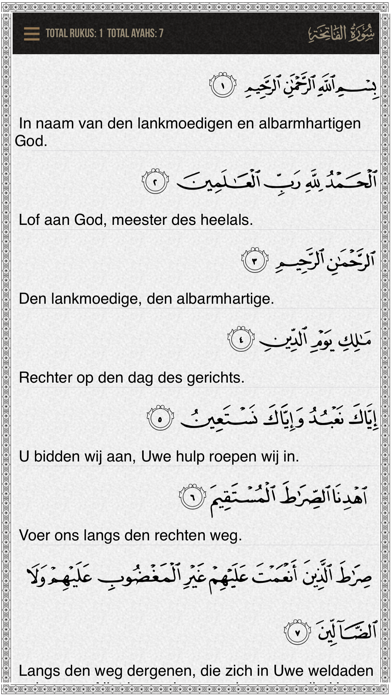 TOTAL RUKUS: 1 TOTAL AYAHS: 7
سُورَةُ الفَاتِحَةِ
بِسْمِ اللَّهِ الرَّحْمَٰنِ الرَّحِيمِ ١
In naam van den lankmoedigen en albarmhartigen
God.
الْحَمْدُ لِلَّهِ رَبِّ الْعَالَمِينَ ٢
Lof aan God, meester des heelals.
الرَّحْمَٰنِ الرَّحِيمِ ٣
Den lankmoedige, den albarmhartige.
مَالِكِ يَوْمِ الدِّينِ ٤
Rechter op den dag des gerichts.
إِيَّاكَ نَعْبُدُ وَإِيَّاكَ نَسْتَعِينُ ٥
U bidden wij aan, Uwe hulp roepen wij in.
اهْدِنَا الصِّرَاطَ الْمُسْتَقِيمَ ٦
Voer ons langs den rechten weg.
صِرَاطَ الَّذِينَ أَنْعَمْتَ عَلَيْهِمْ غَيْرِ الْمَغْضُوبِ عَلَيْهِمْ وَلَا
الضَّالِّينَ ٧
Langs den weg dergenen, die zich in Uwe weldaden